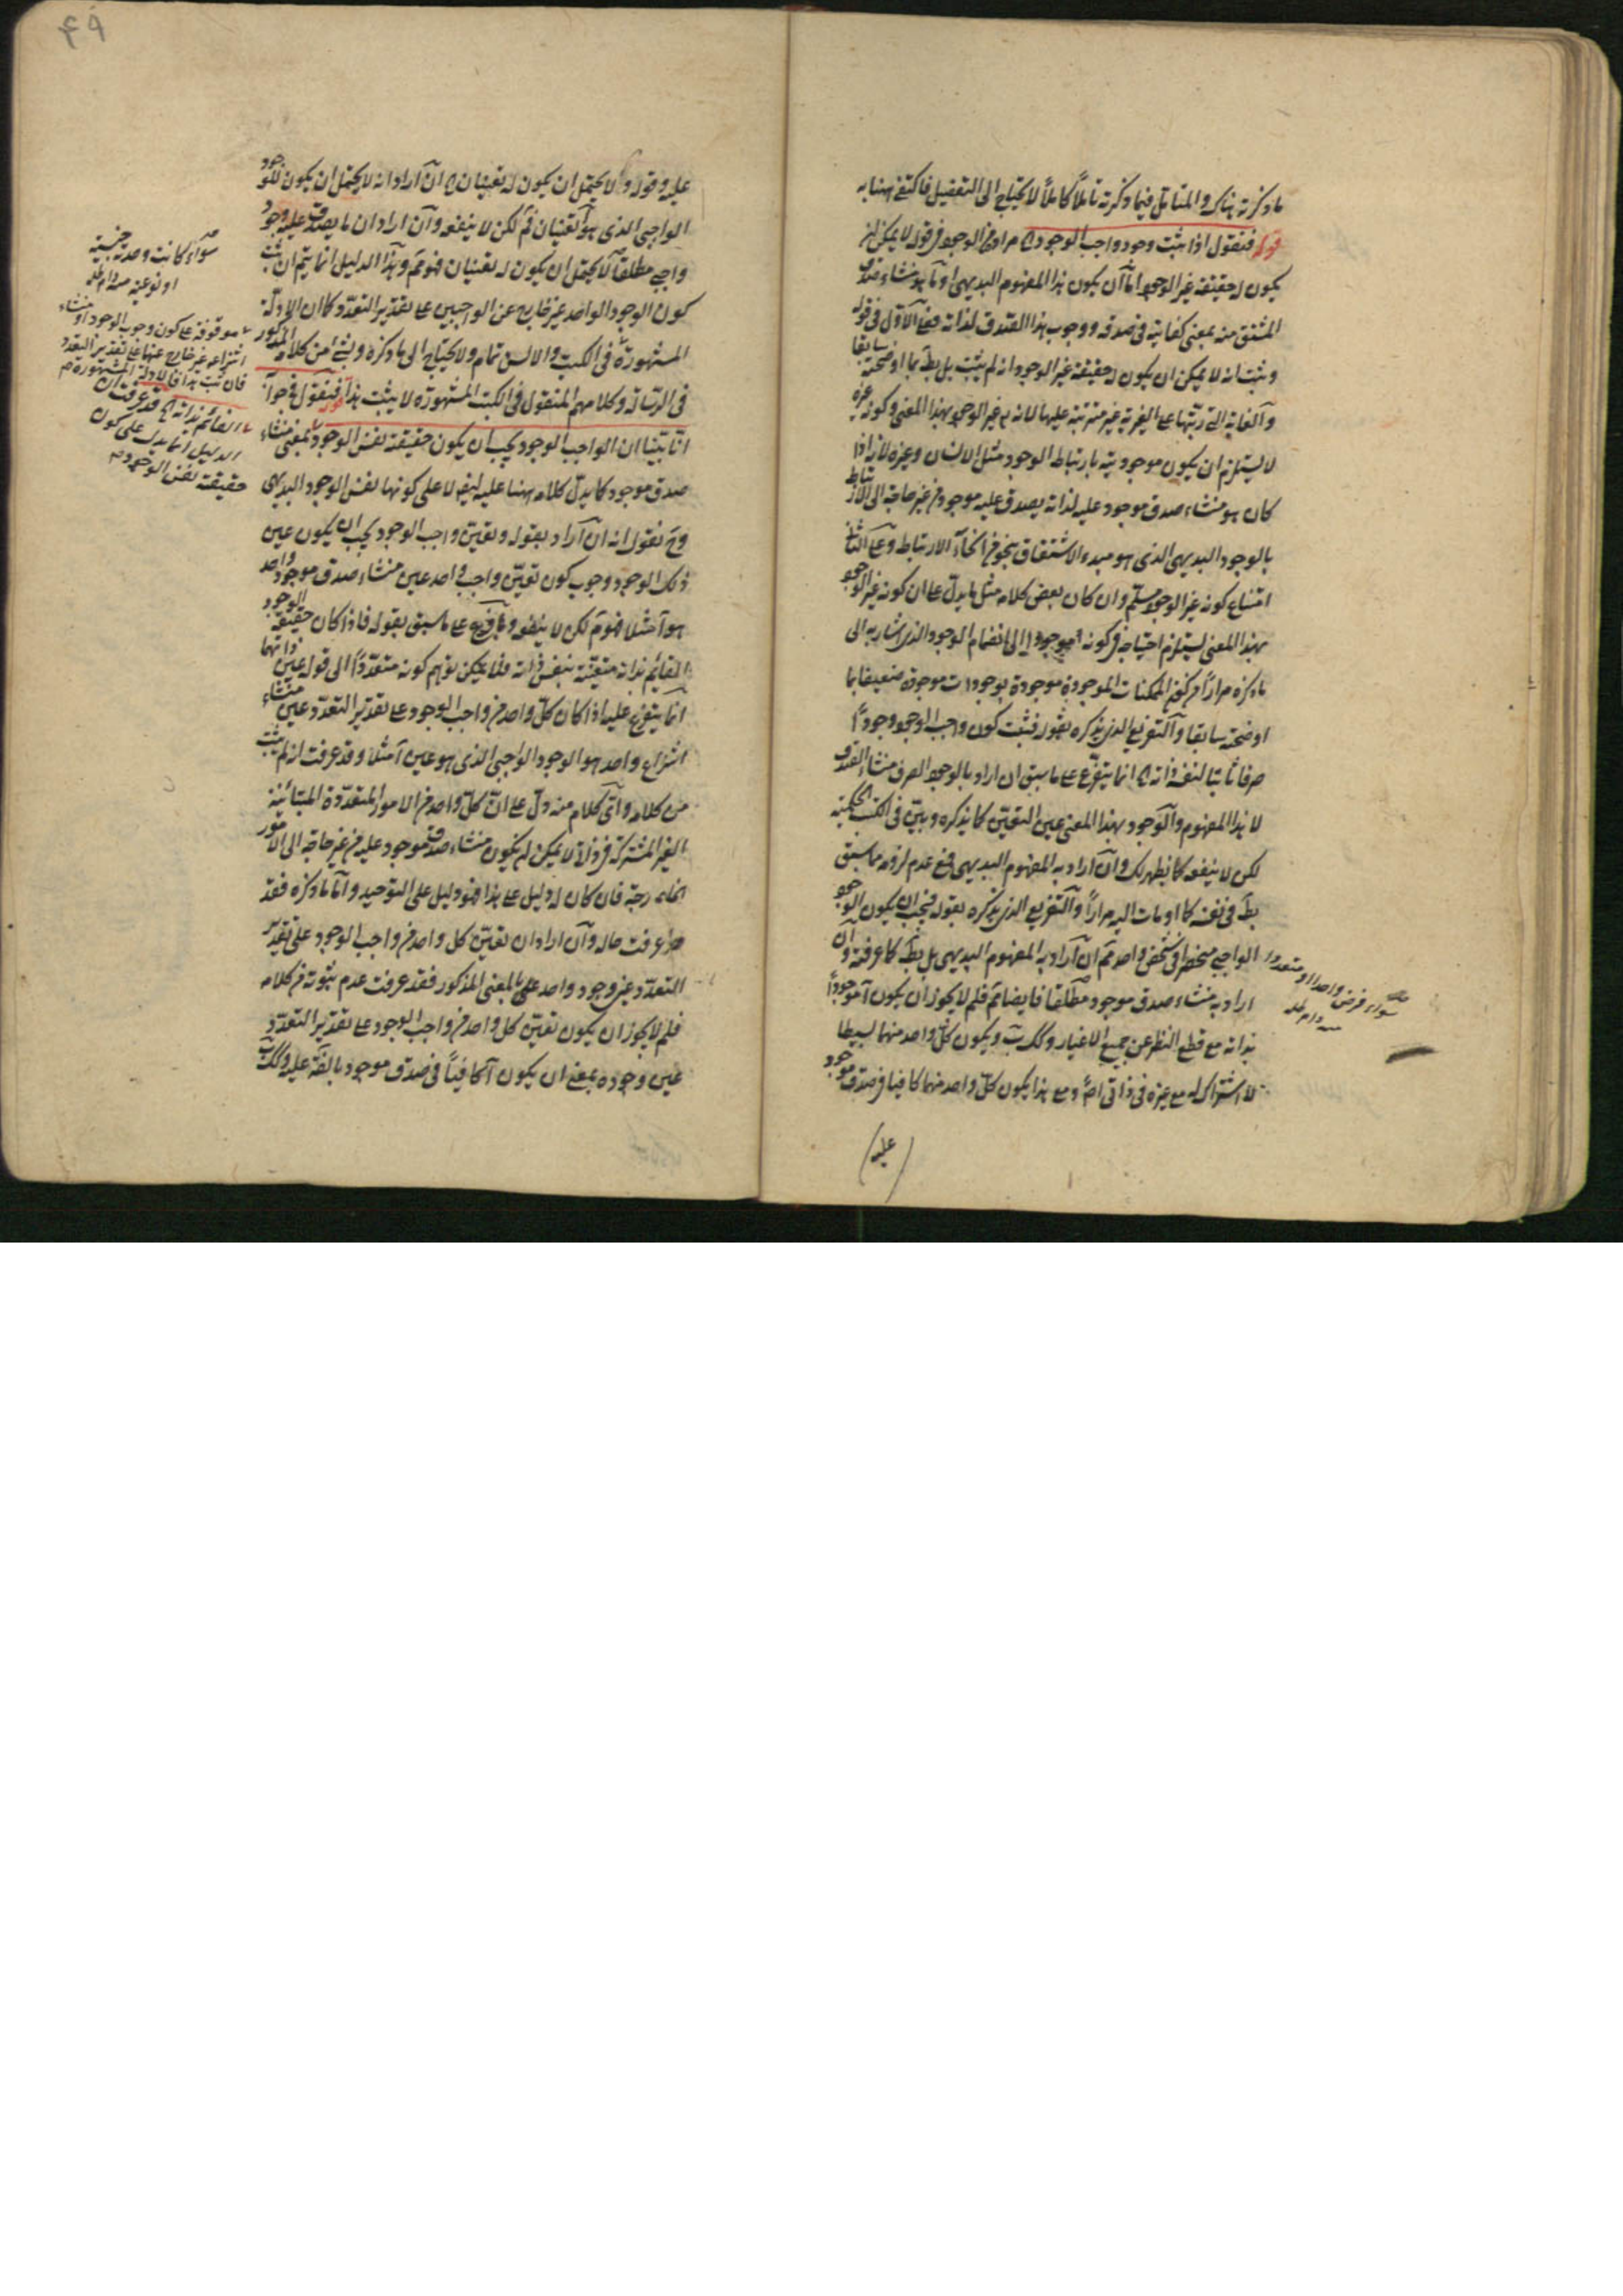 ما ذكرته هناك والمتأمل فيما ذكرته تأملاً كاملاً لا يحتاج الى التفصيل فاكتف ههنا به
قوله فنقول اذا ثبت وجود واجب الوجود الخ مراده من الوجود في قوله لا يمكن ان
يكون له حقيقة غير الوجود اما ان يكون هذا المفهوم البديهي او ما هو منشاء صدق
المشتق منه بمعنى كفايته في صدقه ووجوب هذا الصدق لذاته فعلى الاول في قوله
وثبت انه لا يمكن ان يكون له حقيقة غير الوجود انه لم يثبت بل بطل بما اوضحته سابقا
والغاية التي رتبها على الغيرية غير مترتبة عليها لانه غير الوجود بهذا المعنى وكونه غيره
لا يستلزم ان يكون موجوديته بارتباط الوجود مثل الانسان وغيره لانه اذا
كان هو منشاء صدق موجود عليه لذاته يصدق عليه موجود من غير حاجة الى الارتباط
بالوجود البديهي الذي هو مبدء الاشتقاق بنحو من انحاء الارتباط وعلى الثاني
امتناع كونه غير الوجود مسلم وان كان بعض كلامه مثل ما يدل على ان كونه غير الوجود
بهذا المعنى يستلزم احتياجه في كونه موجودا الى انضمام الوجود الذي اشار به الى
ما ذكره مرارا من كون الممكنات الموجودة موجودة بوجودات موجودة ضعيفا بما
اوضحته سابقا والتفريع الذي يذكره بقوله فثبت كون واجب الوجود وجودًا
صرفا ثابتا لنفسه ذاته الخ انما يتفرع على ما سبق ان اراد بالوجود الصرف منشاء الصدق
لا هذا المفهوم والوجود بهذا المعنى عين التعين كما يذكره وبيّن في الكتب الحكمية
لكن لا ينفعه كما يظهر لك وان اراد به المفهوم البديهي فمع عدم لزومه مما سبق
بطل في نفسه كما اومأت اليه مرارا والتفريع الذي يذكره بقوله فيجب ان يكون الوجود
الواجبي منحصرا في شخص واحد ثم ان اراد به المفهوم البديهي بل بطل كما عرفته وان
اراد به منشاء صدق موجود مطلقا فايضا ثم فلم لا يجوز ان يكون موجوداً
بذاته مع قطع النظر عن جميع الاغيار و ويكون كل واحد منهما بسيطا
لا اشتراك له مع غيره في ذاتي اصلا ومع هذا يكون كل واحد منهما كافيا في صدق موجود
عليه
سواء فرض واحدا او متعددا
منه دام ظله
عليه وقوله ولا يحتمل ان يكون له تعينان الخ ان اراد انه لا يحتمل ان يكون للوجود
الواجبي الذي هو تعينان فمسلم لكن لا ينفعه وان اراد ان ما يصدق عليه وجود
واجب مطلقا لا يحتمل ان يكون له تعينان فهو ثم وهذا الدليل انما يتم ان ثبت
كون الوجود الواحد غير خارج عن الواجبين على تقدير التعدد كما ان الادلة
المشهورة في الكتب والالسن تمام ولا يحتاج الى ما ذكره وشيء من كلامه المذكور
في الرسالة وكلامهم المنقول في الكتب المشهورة لا يثبت هذا قوله فنقول في جوابه
انا بيّنا ان الواجب الوجود يجب ان يكون حقيقته نفس الوجود بمعنى منشاء
صدق موجود كما يدل كلامه ههنا عليه ايضا لا على كونها نفس الوجود البديهي
وح نقول انه ان اراد بقوله وتعين واجب الوجود يجب ان يكون عين
ذلك الوجود وجوب كون تعين واجب واحد عين منشاء صدق موجود واحد
هو آ مثلا فهو ثم لكن لا ينفعه وما فرع على ما سبق بقوله فاذا كان حقيقة الوجود
القائم بذاته متعينة بنفس ذاته فلا يمكن توهم كونه متعددا الى قوله عين ذاتها
انما يتفرع عليه اذا كان كل واحد من واجب الوجود على تقدير التعدد عين منشاء
انتزاع واحد هو الوجود الواجبي الذي هو عين آ مثلا وقد عرفت انه لم يثبت
من كلامه واي كلام منه دل على ان كل واحد من الامور المتعددة المتباينة
الغير المشتركة في ذاتي لا يمكن ان يكون منشاء صدق موجود عليه من غير حاجة الى الامور
الخارجة فان كان له دليل على هذا فهو دليل على التوحيد واما ما ذكره فقد
عرفت حاله وان اراد ان تعين كل واحد من واجب الوجود على تقدير
التعدد عين وجود واحد على المعنى المذكور فقد عرفت عدم ثبوته من كلامه
فلم لا يجوز ان يكون تعين كل واحد من واجب الوجود على تقدير التعدد
عين وجوده بمعنى ان يكون آ كافيا في صدق موجود بالفعل عليه و
سواء كانت وحدته جنسية
او نوعية منه دام ظله
موقوفة على كون وجوب الوجود او منشاء
انتزاعه غير خارج عنها على تقدير التعدد
فان ثبت هذا فالادلة المشهورة
القائم بذاته الخ قد عرفت ان
الدليل انما يدل على كون
حقيقته نفس الوجود
49